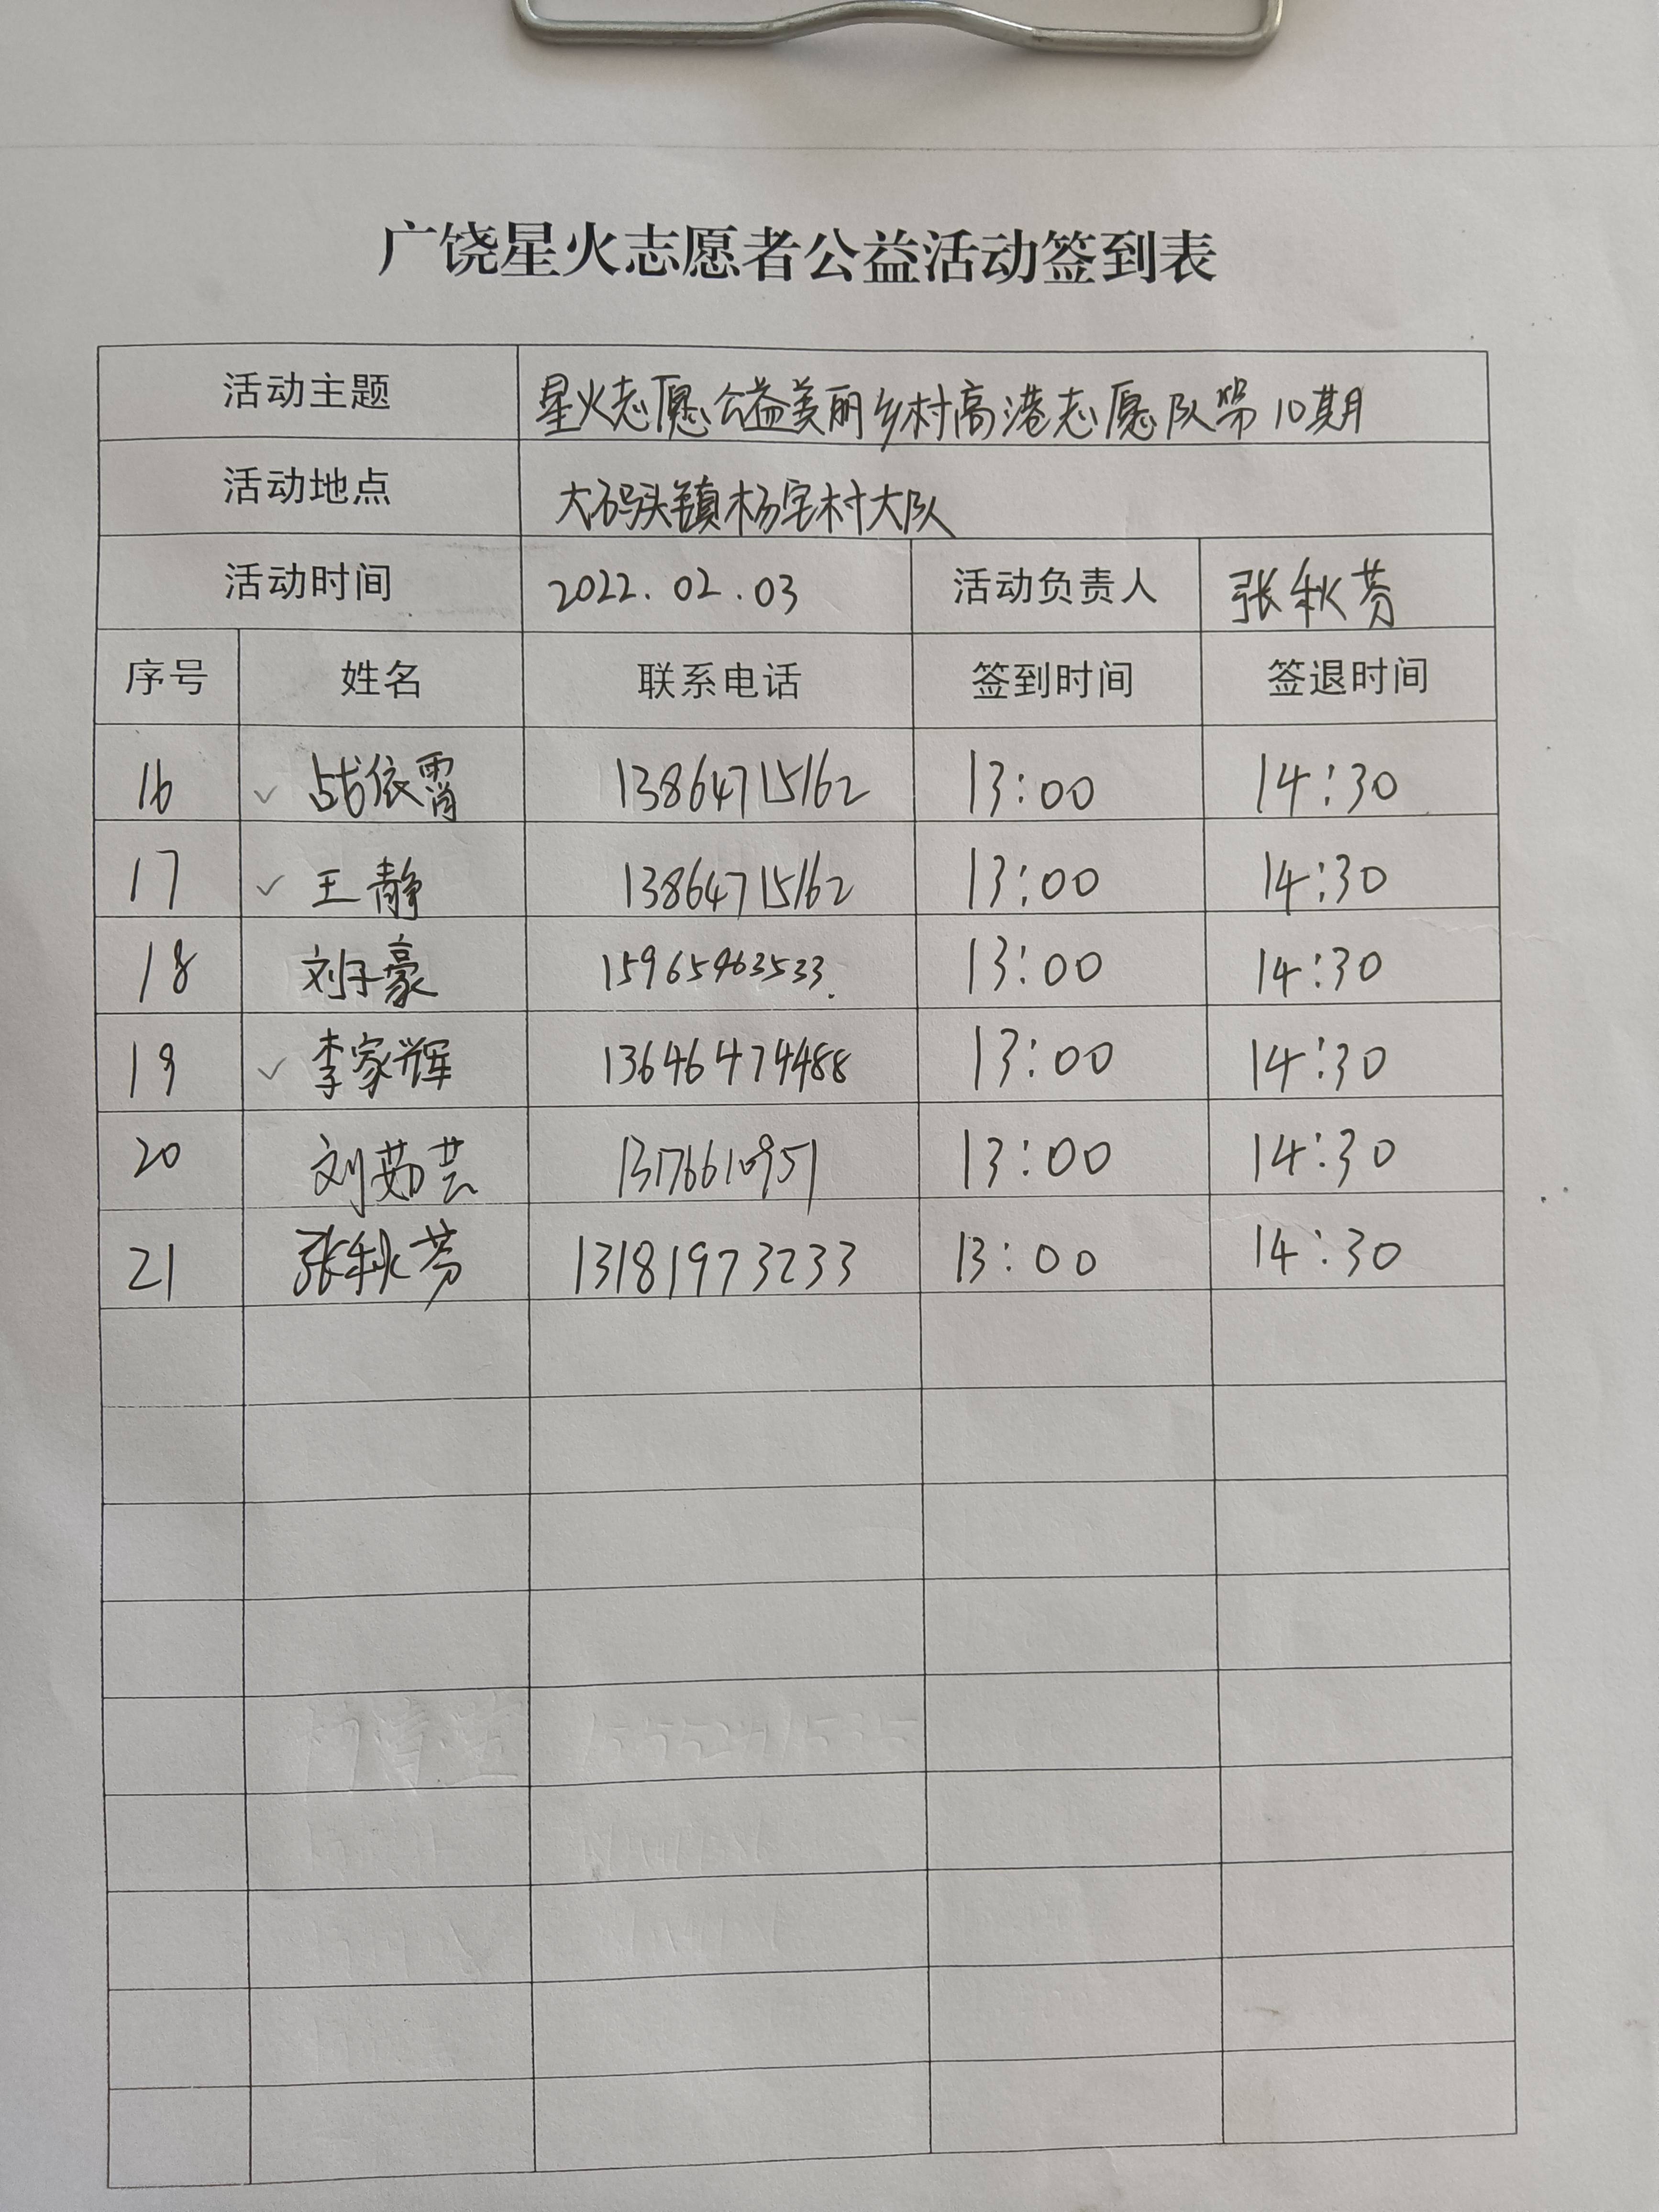 广饶星火志愿者公益活动签到表
活动主题 星火志愿公益美丽乡村高港志愿队第10期
活动地点 大码头镇杨宅村大队
活动时间 2022.02.03 活动负责人 张秋芳
序号 姓名 联系电话 签到时间 签退时间
16 ✓ 战依霄 13864715162 13:00 14:30
17 ✓ 王静 13864715162 13:00 14:30
18 刘子豪 15965463533. 13:00 14:30
19 ✓ 李家辉 13646474488 13:00 14:30
20 刘茹芸 13:00 14:30
21 张秋芳 13181973233 13:00 14:30